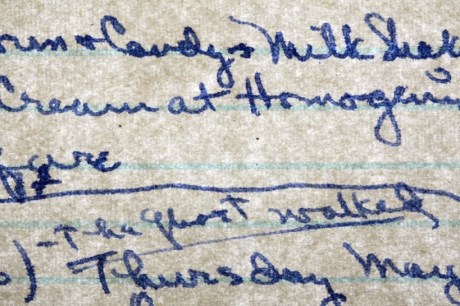 orn & Candy & Milk Shak
Cream at Homogeni
- The ghost walked
) Thursday May